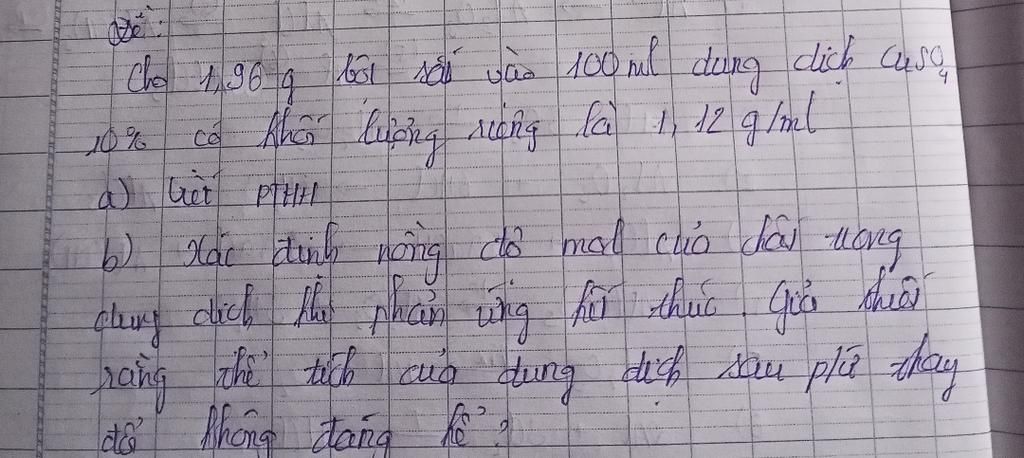 Đề:
Cho 1,96 g bột sắt vào 100 ml dung dịch CuSO4
10% có khối lượng riêng là 1,12 g/ml
a) Viết PTHH
b) Xác định nồng độ mol của chất trong
dung dịch khi phản ứng kết thúc. Giả thuết
rằng thể tích của dung dịch sau pứ thay
đổi không đáng kể?